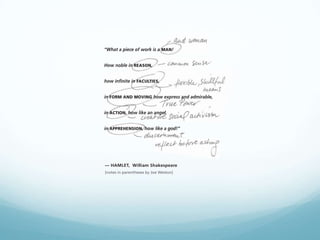 And woman
"What a piece of work is a MAN!
How noble in REASON, — common sense
how infinite in FACULTIES, — flexible, skillful
means
in FORM AND MOVING how express and admirable,
— True Power
in ACTION, how like an angel,
creative social activism
in APPREHENSION, how like a god!"
— discernment
reflect before acting
— HAMLET, William Shakespeare
[notes in parentheses by Joe Weston]